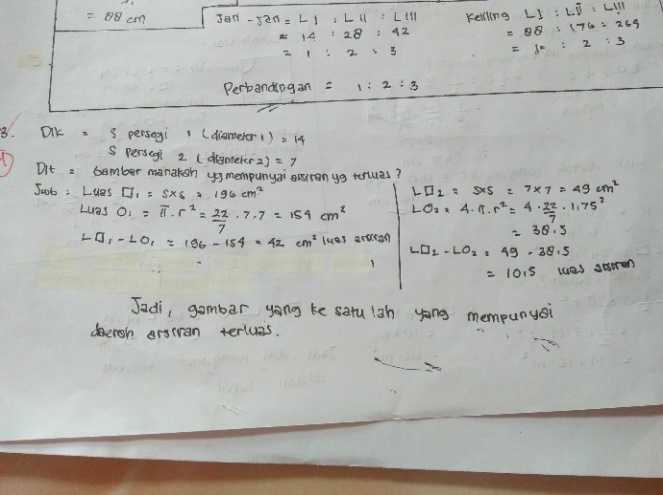 = 88 cm
Jari - jari = L I : L II : L III
= 14 : 28 : 42
= 1 : 2 : 3
Keliling L I : L II : L III
= 88 : 176 = 264
= 1 : 2 : 3
Perbandingan = 1 : 2 : 3
3. Dik = S persegi 1 (diameter 1) = 14
S persegi 2 (diameter 2) = 7
Dit = Gambar manakah yg mempunyai arsiran yg terluas ?
Jwb : Luas □₁ = s×s = 196 cm²
Luas O₁ = π . r² = 22/7 . 7 . 7 = 154 cm²
L□₁ - LO₁ = 196 - 154 = 42 cm² luas arsiran
L□₂ = s×s = 7 × 7 = 49 cm²
LO₂ = 4 . π . r² = 4 . 22/7 . 1,75²
= 38.5
L□₂ - LO₂ = 49 - 38.5
= 10,5 luas arsiran
Jadi, gambar yang ke satu lah yang mempunyai
daerah arsiran terluas.